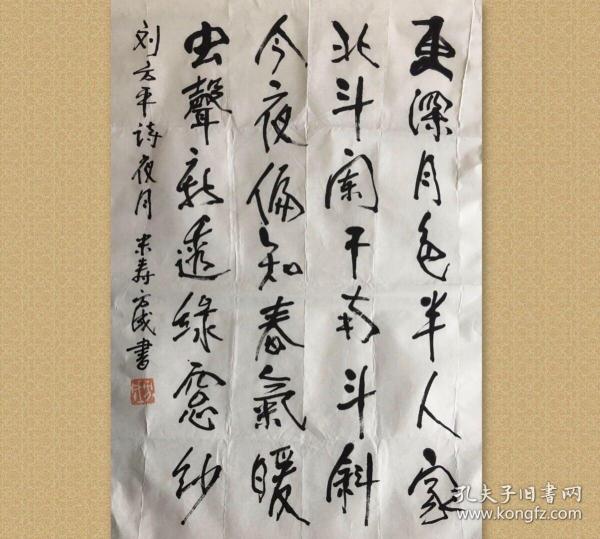 更深月色半人家
北斗阑干南斗斜
今夜偏知春氣暖
虫聲新透綠窓紗
刘方平诗夜月 米寿方成書
孔夫子旧書网
www.kongfz.com